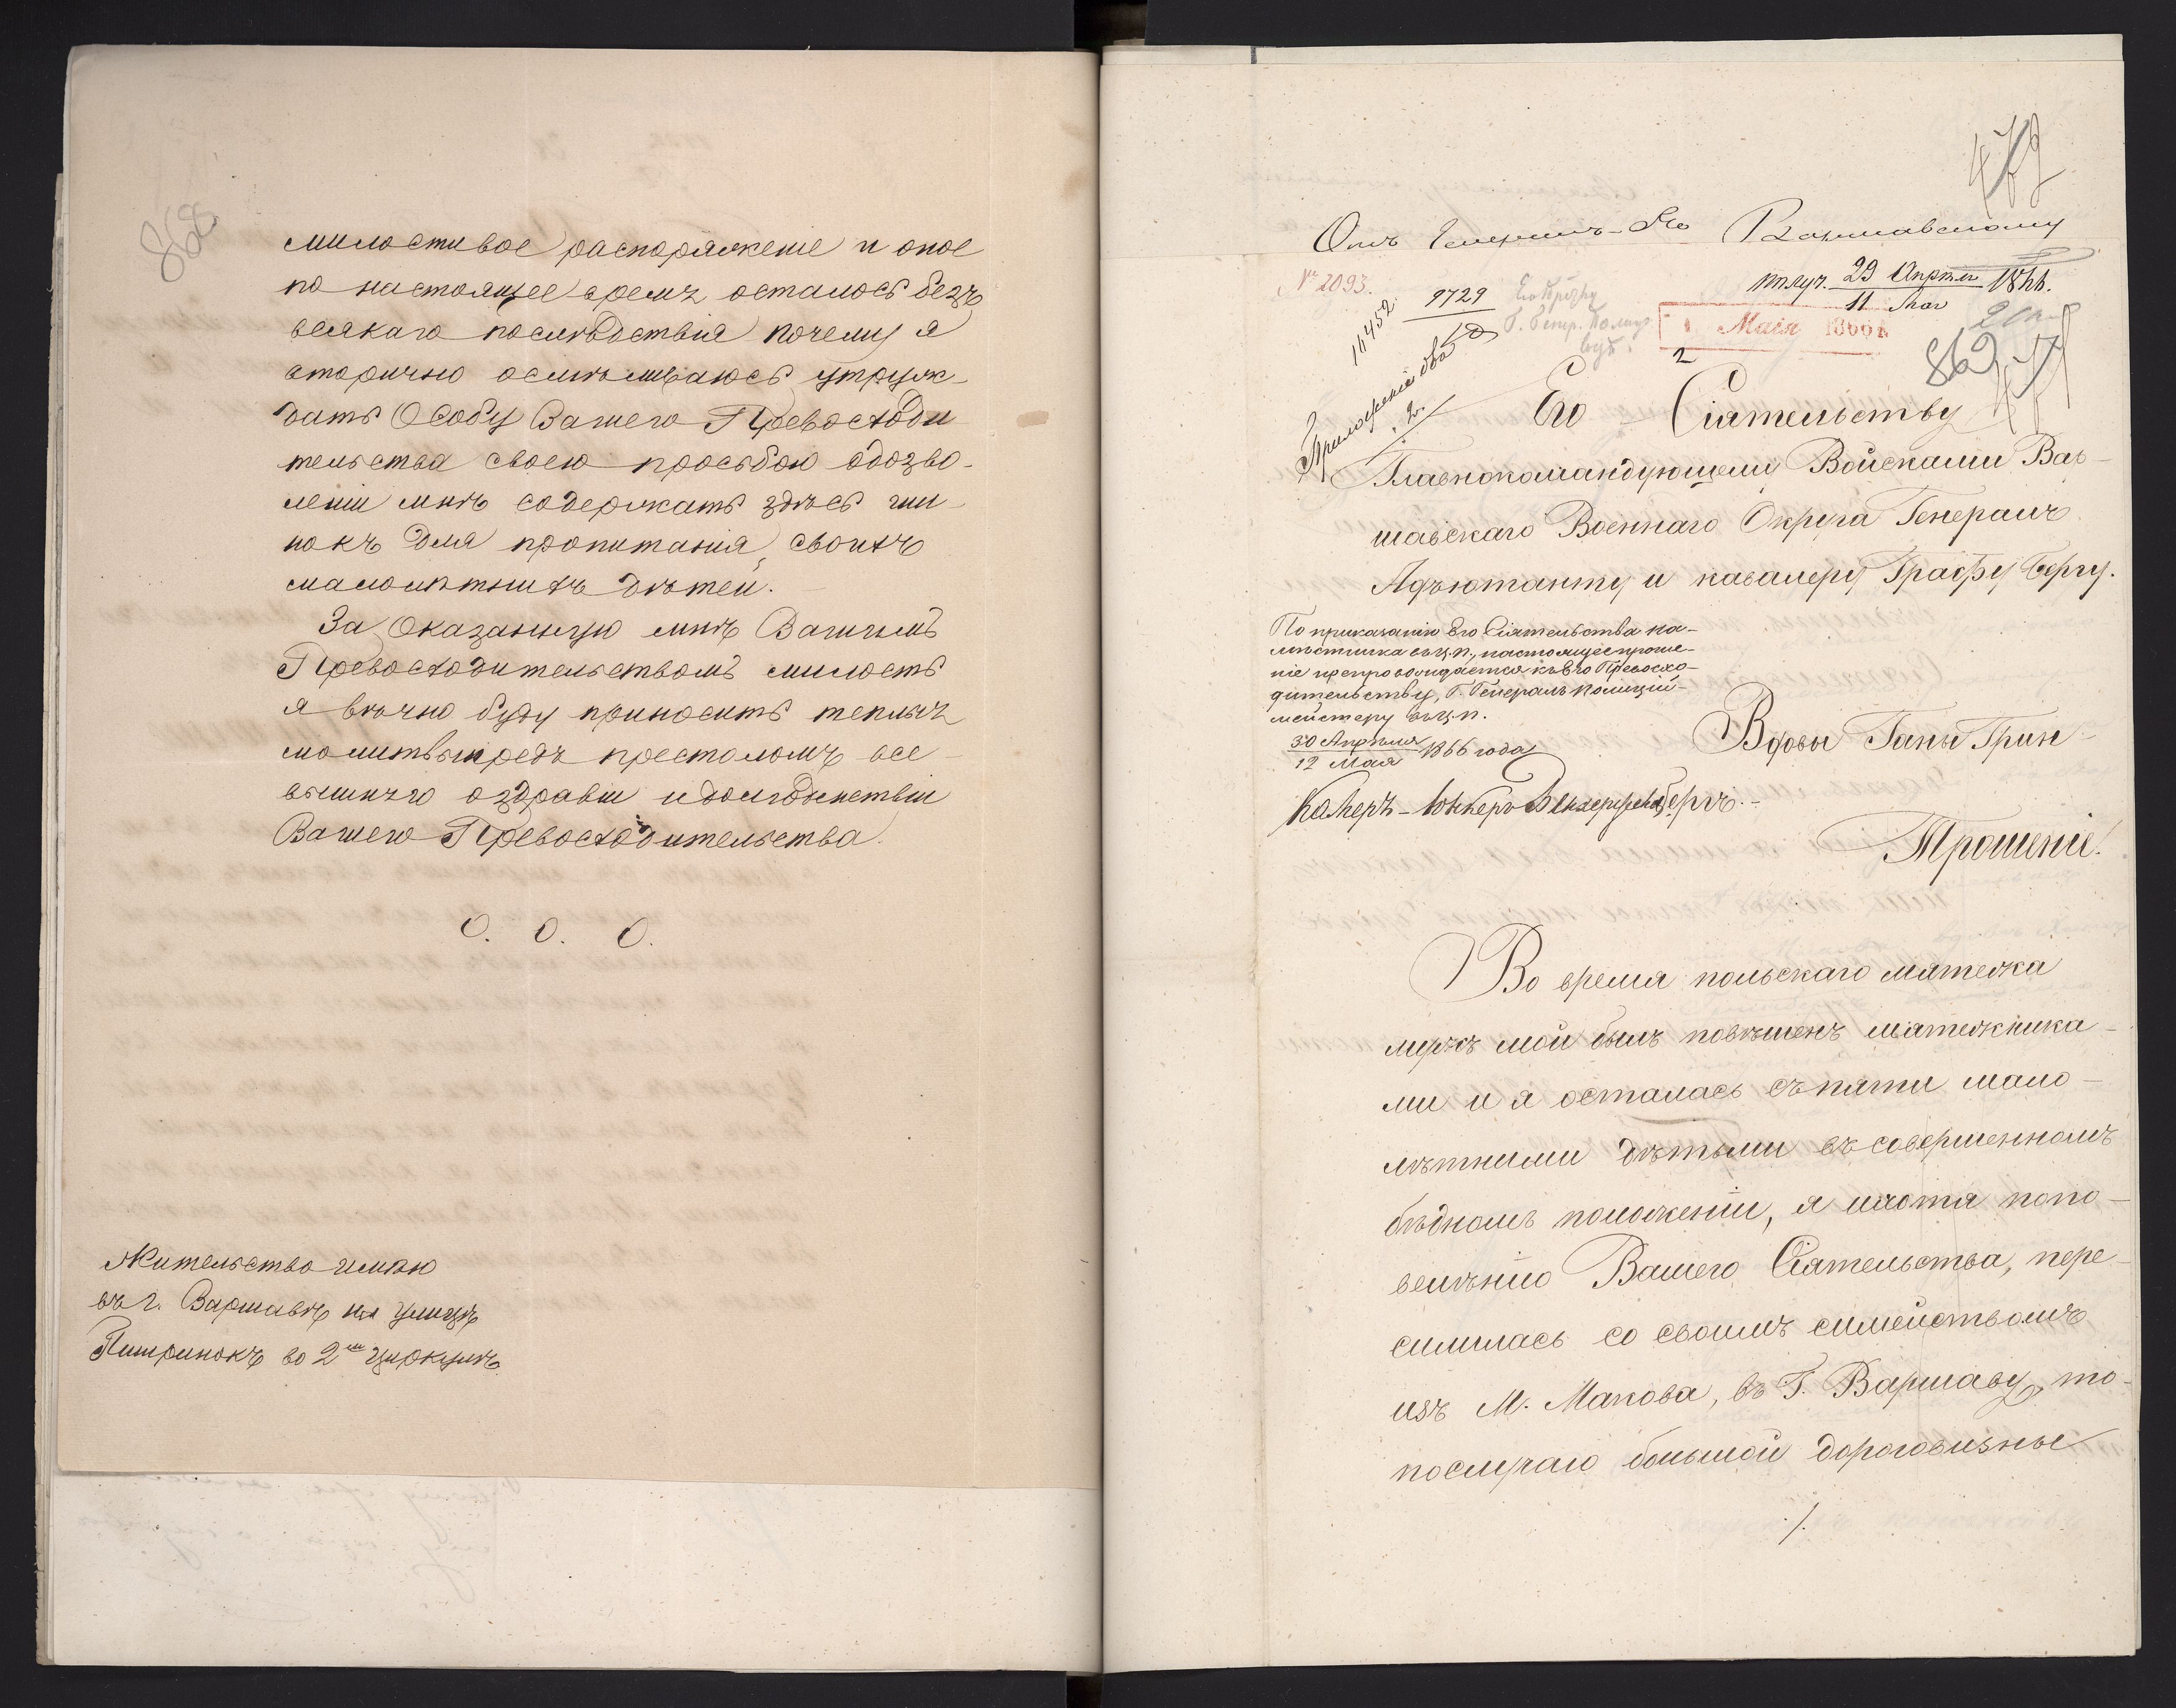 868
милостивое распоряжение и оное
по настоящее время осталось безъ
всякаго последствія почему я
вторично осмѣливаюсь утруж-
дать Особу Вашего Превосходи
тельства своею просьбою одозво-
леніи мнѣ содержать здѣсь ши-
нокъ для пропитанія своихъ
малолѣтныхъ дѣтей.
За оказанную мнѣ Вашимъ
Превосходительствомъ милость
я вѣчно буду приносить теплыя
молитвы предъ престоломъ все-
вышняго оздравіи идолгоденствіи
Вашего Превосходительства.
О. О. О.
Жительство имѣю
въ г. Варшавѣ на улицѣ
во 2 циркулѣ.
Варшавскому
№ 2093.
9729
11452
получ. 29 Апрѣля 1866.
11 Мая
Мая 1866
2
869
Приложеніе
2
Его Сіятельству
Главнокомандующему Войсками Вар-
шавскаго Военнаго Округа Генералъ
Адъютанту и кавалеру Графу Бергу.
По приказанію Его Сіятельства На-
мѣстника въ Ц.П., настоящее проше-
ніе препровождается къ Его Превосхо-
дительству, Г. Генералъ Полицій-
мейстеру въ Ц.П.
30 Апрѣля 1866 года
12 Мая
Камеръ-Юнкеръ
Вдовы Ганы Грин
Прошеніе.
Во время польскаго мятежа
мужъ мой былъ повѣшенъ мятежника-
ми и я осталась съ пяти мало-
лѣтними дѣтьми въ совершенномъ
бѣдномъ положеніи, я и хотя попо-
велѣнію Вашего Сіятельства, пере-
силилась со своимъ симействомъ
изъ М. Макова, въ Г. Варшаву, то-
послучаю большой дороговизны
./.